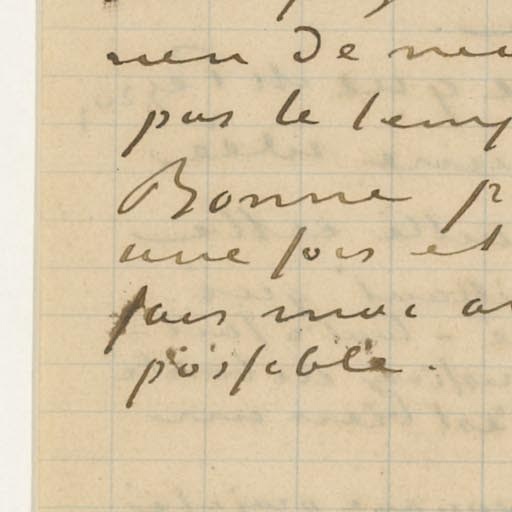 rien de ne
pas le temp
Bonne p
une fois et
fais moi
possible.